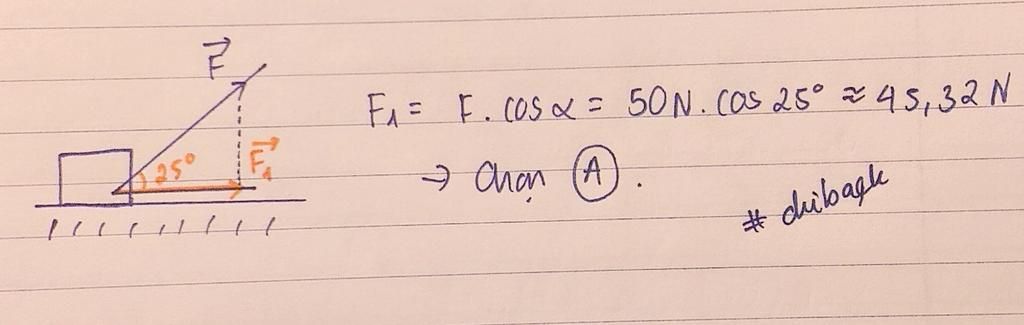 F⃗
25°
F⃗₁
F₁ = F . cos α = 50N . cos 25° ≈ 45,32 N
→ Chọn Ⓐ .